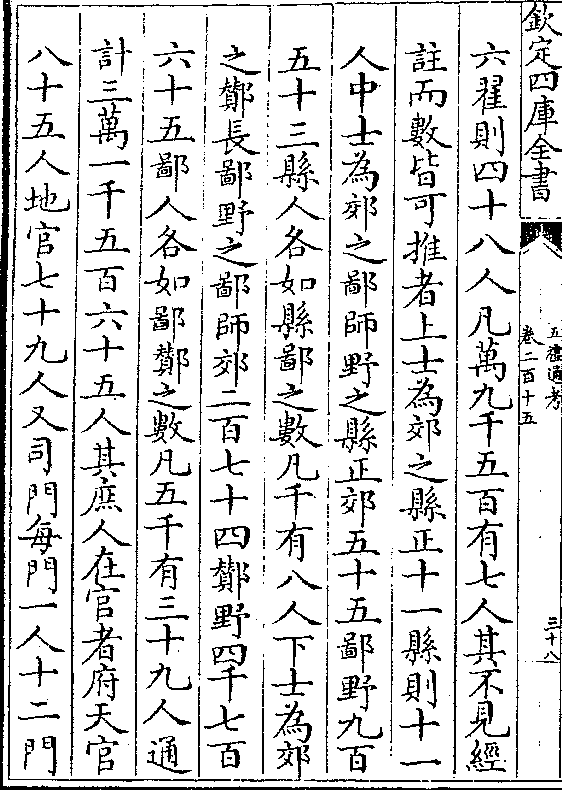 欽定四庫全書
五禮通考
卷二百十五
三十八
六翟則四十八人凡萬九千五百有七人其不見經
註而數皆可推者上士為郊之縣正十一縣則十一
人中士為郊之鄙師野之縣正郊五十五鄙野九百
五十三縣人各如縣鄙之數凡千有八人下士為郊
之酇長鄙野之鄙師郊二百七十四酇野四千七百
六十五鄙人各如鄙酇之數凡五千有三十九人通
計三萬一千五百六十五人其庶人在官者府天官
八十五人地官七十九人又司門每門一人十二門